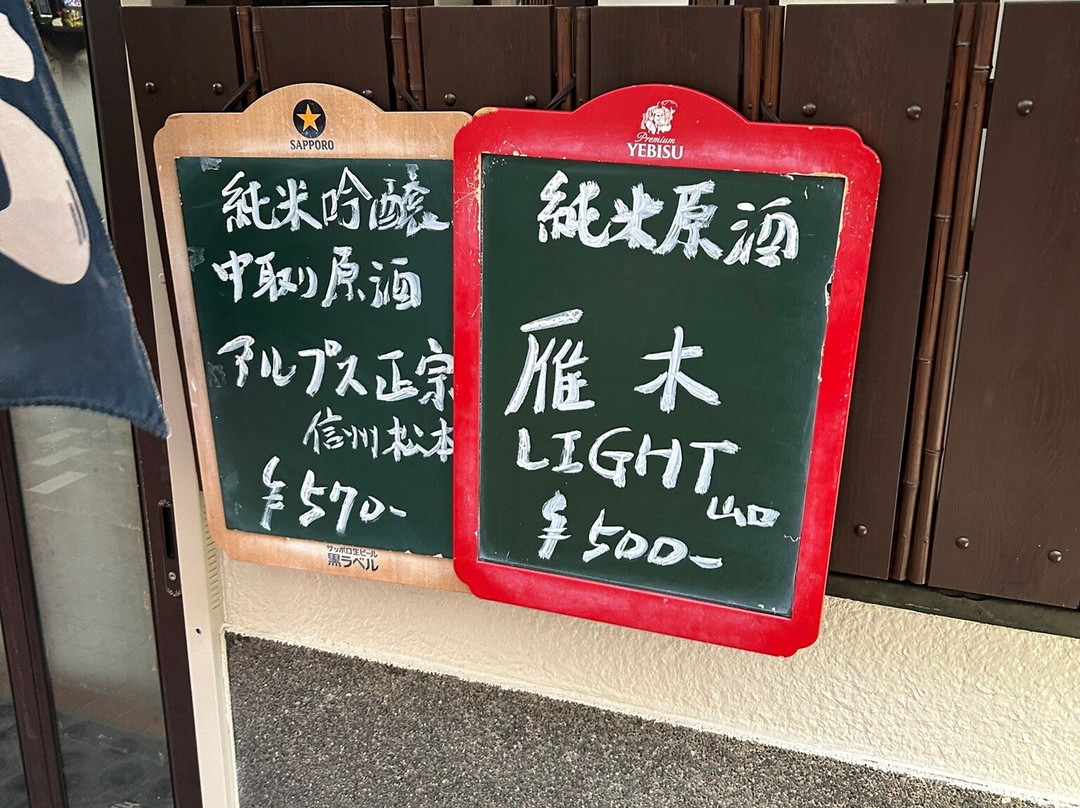 SAPPORO
純米吟醸
中取り原酒
アルプス正宗
信州松本
¥570-
サッポロ生ビール
黒ラベル
Premium
YEBISU
純米原酒
雁木
LIGHT
山口
¥500-